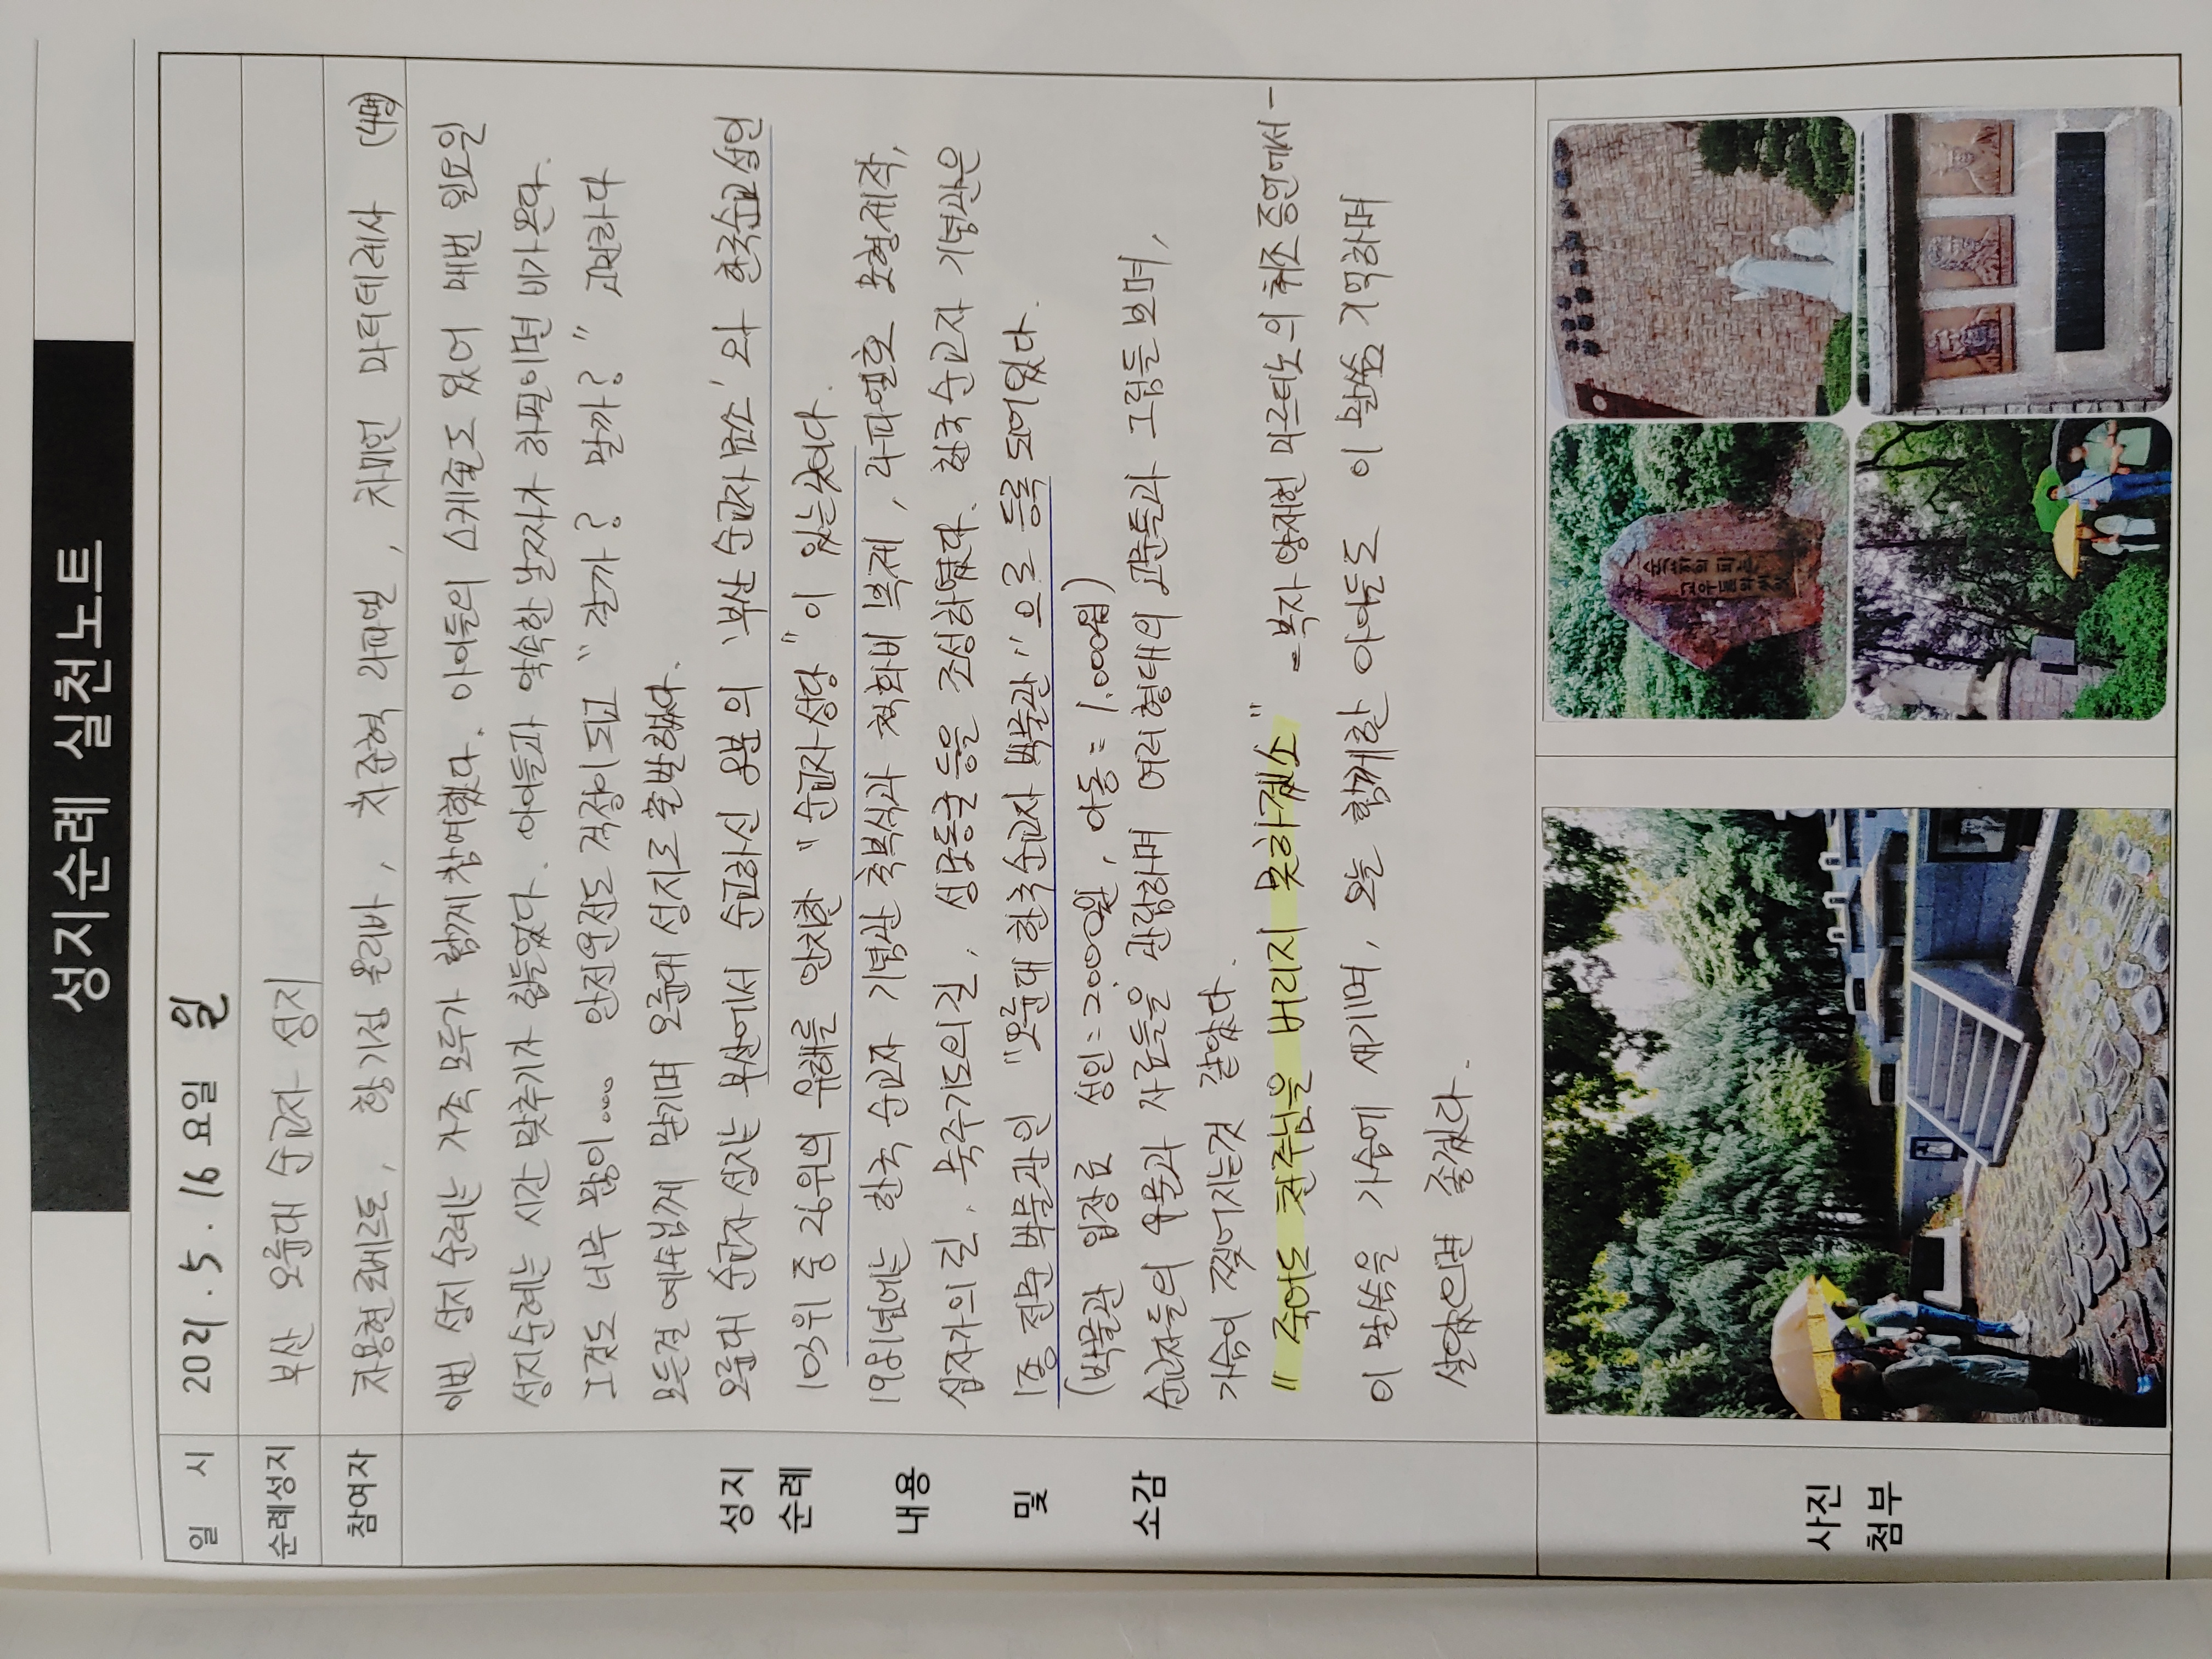 성지순례 실천노트
일 시 2021. 5. 16 요일 일
순례성지 부산 오륜대 순교자 성지
참여자 차용현 로베르토, 황기정 올리바, 차준혁 라파엘, 차미연 마더데레사 (4명)
이번 성지순례는 가족 모두가 함께 참여했다. 아이들의 스케줄도 있어 매번 일요일
성지순례는 시간 맞추기가 힘들었다. 아이들과 약속한 날짜가 하필이면 비가 온다.
그것도 너무 많이.... 안전운전도 걱정이 되고 “갈까? 말까?” 고민하다
모든걸 예수님께 맡기며 오륜대 성지로 출발했다.
오륜대 순교자 성지는 부산에서 순교하신 8분의 '부산 순교자묘소'와 한국순교성인
103위 중 26위의 유해를 안치한 “순교자성당”이 있는곳이다.
1981년에는 한국 순교자 기념관 축복식과 척화비 복제, 라파엘호 모형제작,
십자가의 길, 묵주기도의 길, 성모동굴 등을 조성하였다. 한국 순교자 기념관은
1종 전문 박물관인 “오륜대 한국순교자 박물관”으로 등록 되어있다.
(박물관 입장료 성인:2,000원, 아동:1,000원)
순교자들의 유물과 자료들을 관람하며 여러형태의 고문틀과 그림들 보며,
가슴이 찢어지는것 같았다.
“죽어도 천주님을 버리지 못하겠소” -복자 양재현 마르티노의 취조 증언에서-
이 말씀을 가슴에 새기며, 오늘 함께한 아이들도 이 말씀 기억하며
살았으면 좋겠다.
성지
순례
내용
및
소감
사진
첨부
순교자의 피는